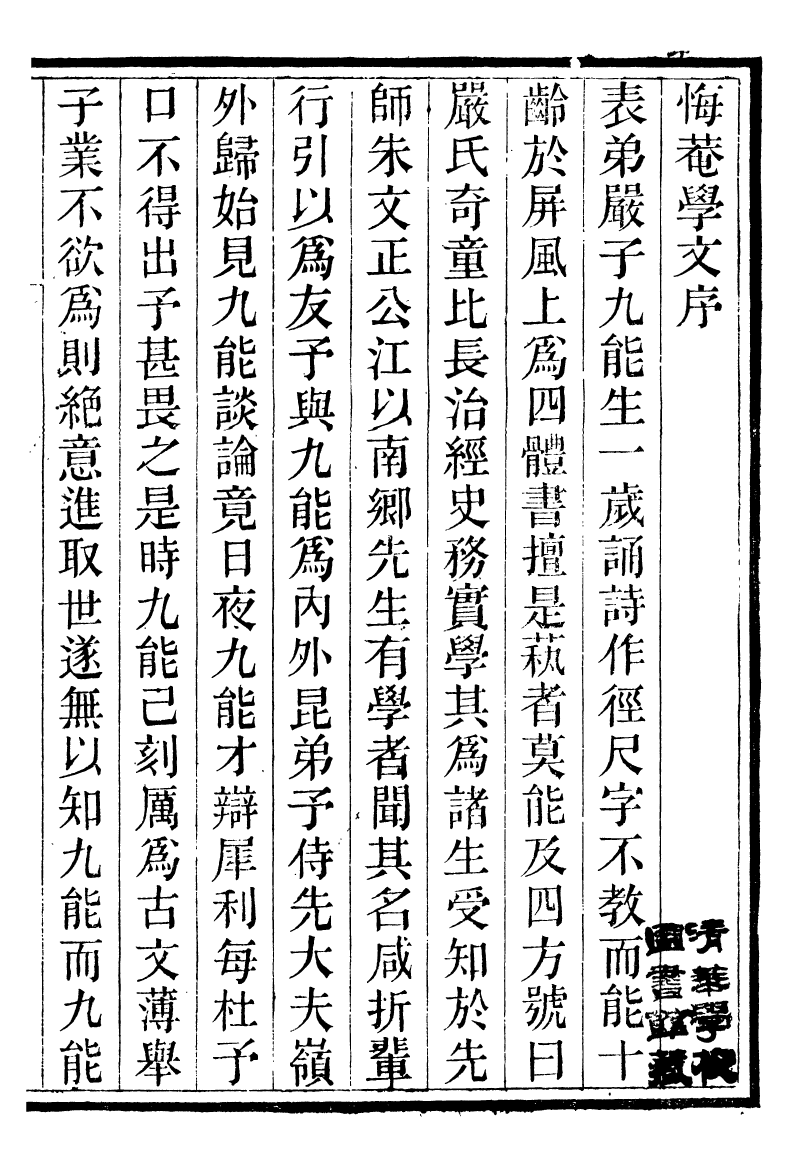 悔菴學文序
表弟嚴子九能生一歲誦詩作徑尺字不教而能十
齡於屏風上爲四體書擅是萟者莫能及四方號曰
嚴氏奇童比長治經史務實學其爲諸生受知於先
師朱文正公江以南鄉先生有學者聞其名咸折輩
行引以爲友予與九能爲內外昆弟予侍先大夫嶺
外歸始見九能談論竟日夜九能才辯犀利每杜予
口不得出予甚畏之是時九能已刻厲爲古文薄舉
子業不欲爲則絶意進取世遂無以知九能而九能
清華學校
圖書館藏